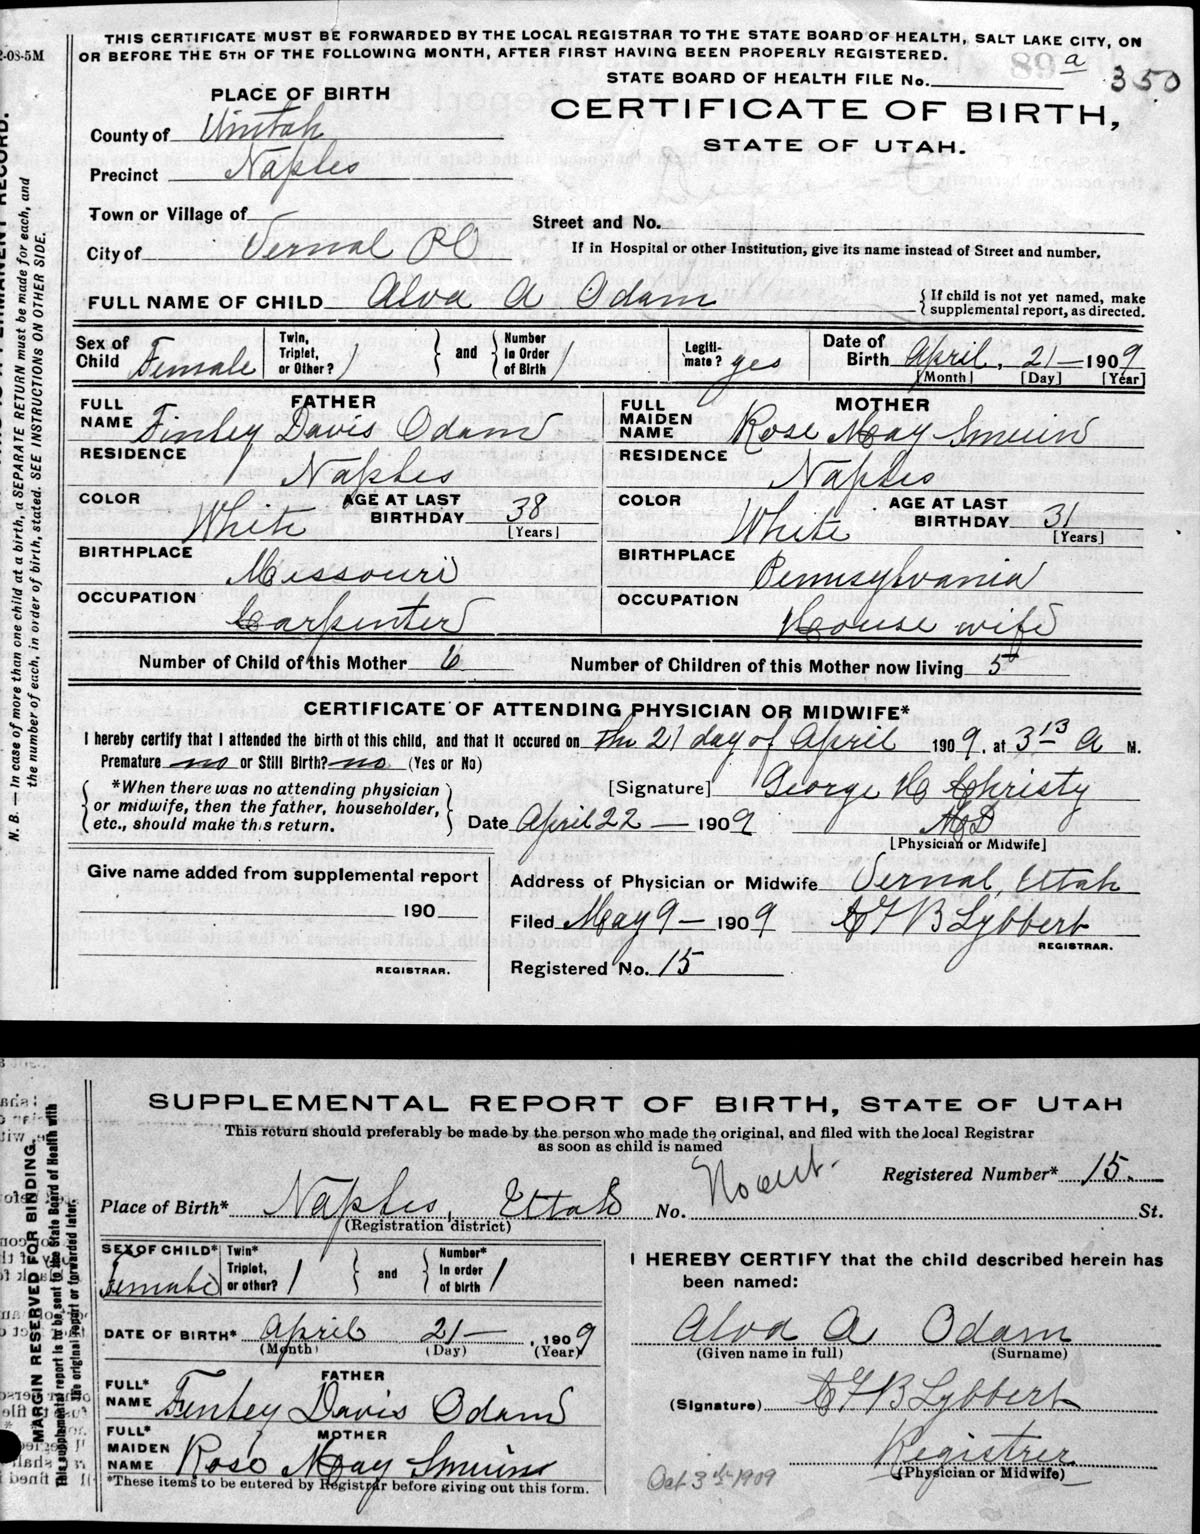 THIS CERTIFICATE MUST BE FORWARDED BY THE LOCAL REGISTRAR TO THE STATE BOARD OF HEALTH, SALT LAKE CITY, ON
OR BEFORE THE 5TH OF THE FOLLOWING MONTH, AFTER FIRST HAVING BEEN PROPERLY REGISTERED.
2-08-5M
STATE BOARD OF HEALTH FILE No. 89 a 350
PLACE OF BIRTH
CERTIFICATE OF BIRTH,
STATE OF UTAH.
County of Uintah
Precinct Naples
Town or Village of
Street and No.
City of Vernal PO
If in Hospital or other Institution, give its name instead of Street and number.
FULL NAME OF CHILD Alva A Odam
{ If child is not yet named, make supplemental report, as directed.
Sex of Child Female
Twin, Triplet, or Other? 1 } and { Number In Order of Birth 1
Legitimate? yes
Date of Birth April, 21 — 1909
[Month] [Day] [Year]
FATHER
FULL NAME Finley Davis Odam
RESIDENCE Naples
COLOR White
AGE AT LAST BIRTHDAY 38 [Years]
BIRTHPLACE Missouri
OCCUPATION Carpenter
MOTHER
FULL MAIDEN NAME Rose May Smuin
RESIDENCE Naples
COLOR White
AGE AT LAST BIRTHDAY 31 [Years]
BIRTHPLACE Pennsylvania
OCCUPATION House wife
Number of Child of this Mother 6
Number of Children of this Mother now living 5
CERTIFICATE OF ATTENDING PHYSICIAN OR MIDWIFE*
I hereby certify that I attended the birth of this child, and that it occured on the 21 day of April 1909, at 3 13 A M.
Premature no or Still Birth? no (Yes or No)
{ *When there was no attending physician or midwife, then the father, householder, etc., should make this return. }
[Signature] George H Christy
Date April 22 — 1909 MD
[Physician or Midwife]
Give name added from supplemental report
190
REGISTRAR.
Address of Physician or Midwife Vernal, Utah
Filed May 9 — 1909 C F B Lybbert
REGISTRAR.
Registered No. 15
PERMANENT RECORD.
N. B. — In case of more than one child at a birth, a SEPARATE RETURN must be made for each, and
the number of each, in order of birth, stated. SEE INSTRUCTIONS ON OTHER SIDE.
SUPPLEMENTAL REPORT OF BIRTH, STATE OF UTAH
This return should preferably be made by the person who made the original, and filed with the local Registrar
as soon as child is named
Registered Number* 15.
Place of Birth* Naples, Utah No. St.
(Registration district)
SEX OF CHILD* Female
Twin* Triplet, or other? 1 } and { Number* In order of birth 1
I HEREBY CERTIFY that the child described herein has
been named:
DATE OF BIRTH* April 21 — , 1909
(Month) (Day) (Year)
Alva A Odam
(Given name in full) (Surname)
FATHER
FULL* NAME Finley Davis Odam
(Signature) C F B Lybbert
MOTHER
FULL* MAIDEN NAME Rose May Smuin
Registrer
(Physician or Midwife)
*These items to be entered by Registrar before giving out this form.
Oct 3rd 1909
MARGIN RESERVED FOR BINDING.
This supplemental report is to be sent to the State Board of Health with
the original report or forwarded later.